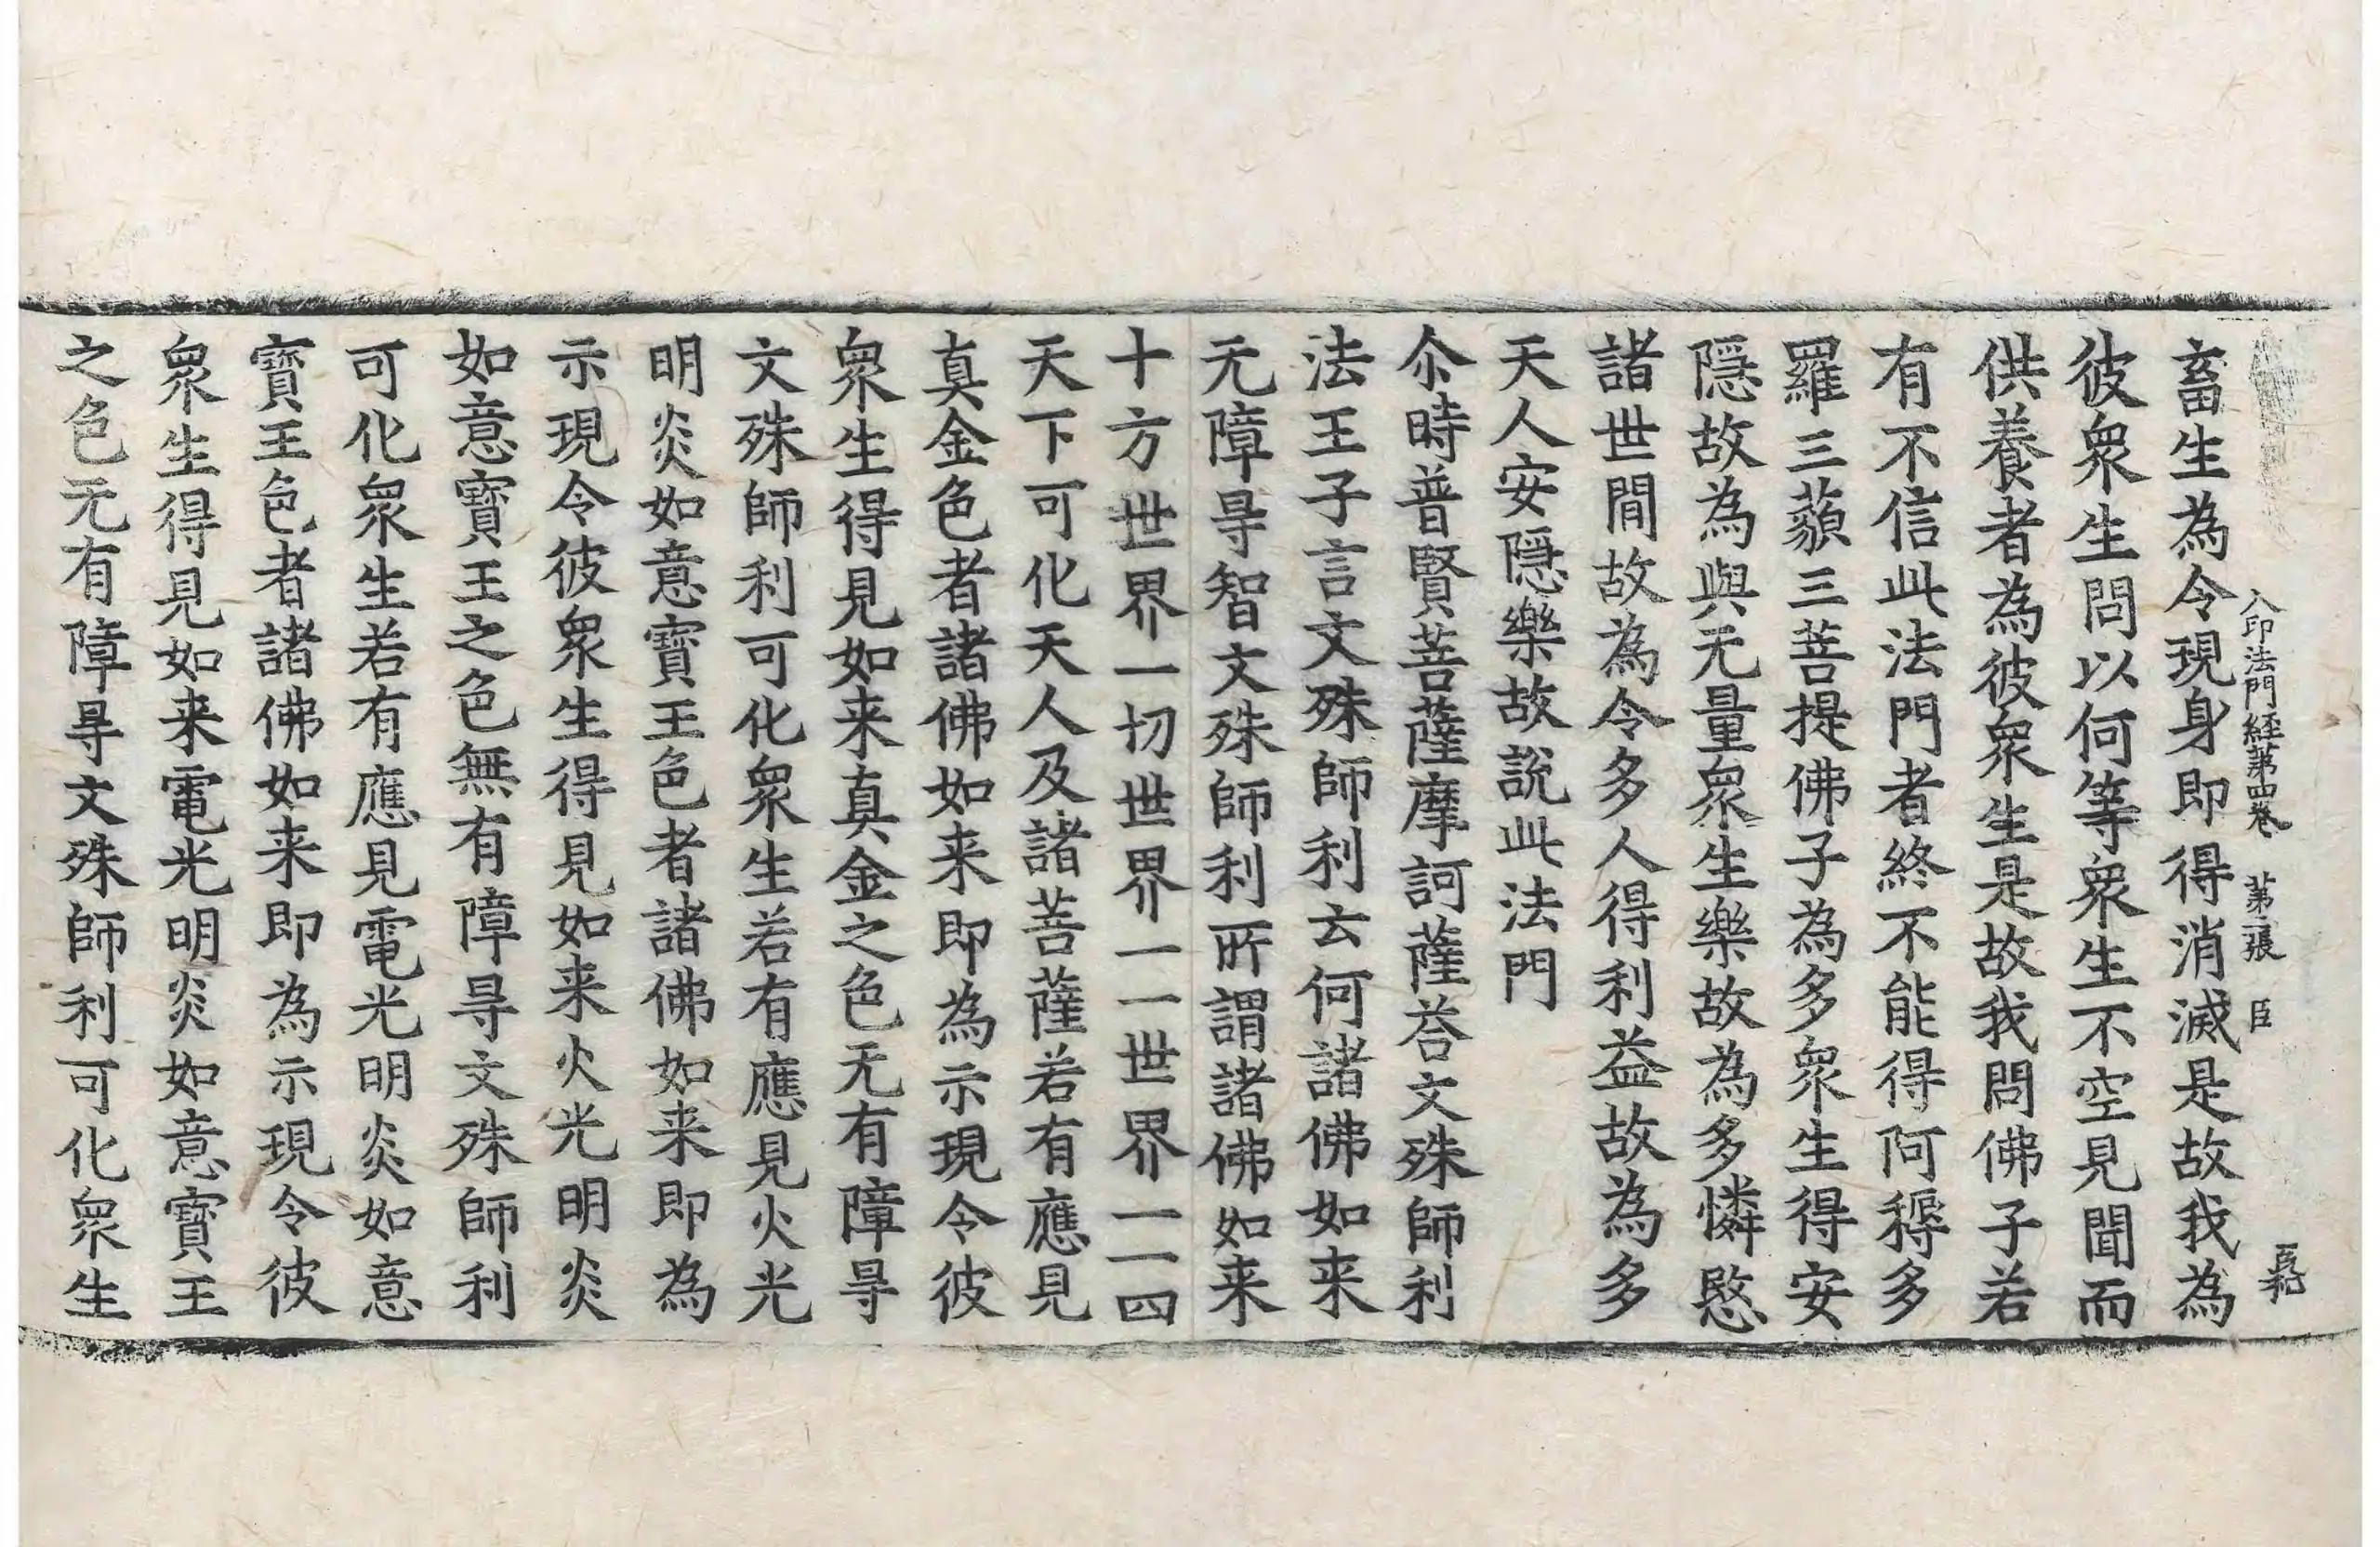 入印法門経第四卷 第二張 臣
畜生為令現身即得消滅是故我為
彼衆生問以何等衆生不空見聞而
供養者為彼衆生是故我問佛子若
有不信此法門者終不能得阿耨多
羅三藐三菩提佛子為多衆生得安
隱故為與无量衆生樂故為多憐愍
諸世間故為令多人得利益故為多
天人安隱樂故說此法門
尒時普賢菩薩摩訶薩荅文殊師利
法王子言文殊師利云何諸佛如来
无障㝵智文殊師利所謂諸佛如来
十方世界一切世界一一世界一一四
天下可化天人及諸菩薩若有應見
真金色者諸佛如来即為示現令彼
衆生得見如来真金之色无有障㝵
文殊師利可化衆生若有應見火光
明炎如意寶王色者諸佛如来即為
示現令彼衆生得見如来火光明炎
如意寶王之色無有障㝵文殊師利
可化衆生若有應見電光明炎如意
寶王色者諸佛如来即為示現令彼
衆生得見如来電光明炎如意寶王
之色无有障㝵文殊師利可化衆生